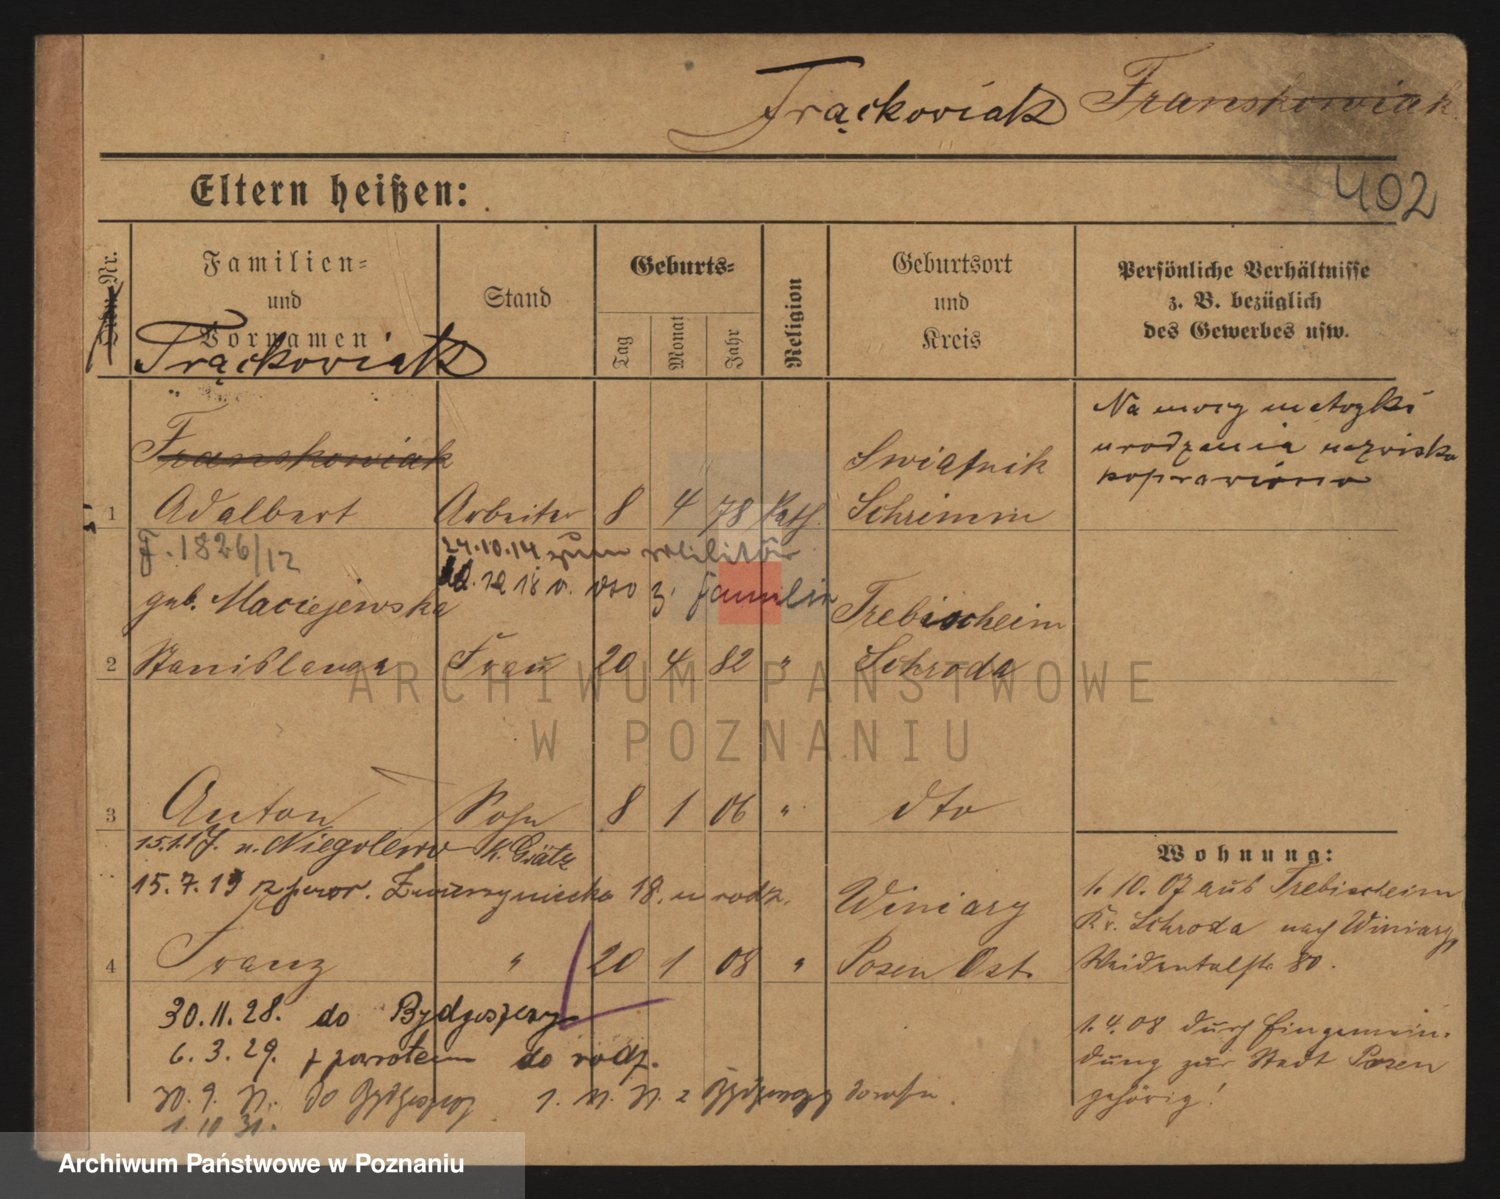 Frąckowiak Franskowiak
402
Eltern heißen:
Nr.
Familien=
und
Vornamen
Frąckowiak
Stand
Geburts=
Tag
Monat
Jahr
Religion
Geburtsort
und
Kreis
Persönliche Verhältnisse
z. B. bezüglich
des Gewerbes usw.
Na mocy metryki
urodzenia nazwisko
poprawiono
Franskowiak
Swiątnik
1 Adalbert Arbeiter 8 4 78 kath. Schrimm
F. 1826/12
24.10.14 zum Militär
12.18 v. dto z. Familie
geb. Maciejewska
Trebisheim
2 Stanislawa Frau 20 4 82 " Schroda
3 Anton Sohn 8 1 06 " dto
15.1.17. n. Niegolewo K. Grätz
15.7.19 z powr. Zwierzyniecka 18. u rodz.
Winiary
4 Franz " 20 1 08 " Posen Ost.
30.11.28. do Bydgoszczy
6.3.29. z powrotem do rodz.
do Bydgoszczy
z Bydgoszczy
1.10.31.
Wohnung:
1.10.07 aus Trebisheim
Kr. Schroda nach Winiary
Weidentalstr. 80.
1.4.08 durch Eingemein-
dung zur Stadt Posen
gehörig!
ARCHIWUM PAŃSTWOWE
W POZNANIU
Archiwum Państwowe w Poznaniu